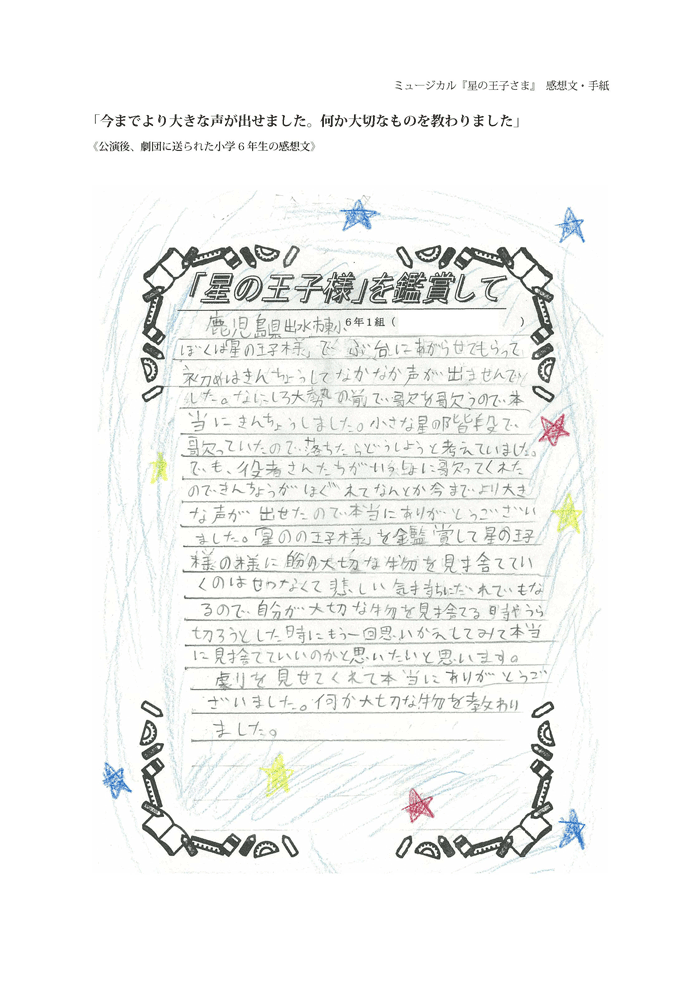 ミュージカル『星の王子さま』 感想文・手紙
「今までより大きな声が出せました。何か大切なものを教わりました」
《公演後、劇団に送られた小学6年生の感想文》
「星の王子様」を鑑賞して
鹿児島県出水市 小 6年1組( )
ぼくは「星の王子様」で ぶ台にあがらせてもらって
初めはきんちょうしてなかなか声が出ませんで
した。なにしろ大勢の前で歌を歌うので本
当にきんちょうしました。小さな星の階段で
歌っていたので落ちたらどうしようと考えていました。
でも、役者さんたちがいっしょに歌ってくれた
のできんちょうがほぐれてなんとか今までより大き
な声が出せたので本当にありがとうござい
ました。「星のの王子様」を鑑賞して星の王子
様の様に自分の大切な物を見捨ててい
くのはせつなくて悲しい気持ちにだれでもな
るので自分が大切な物を見捨てる時やうら
切ろうとした時にもう一回思いかえしてみて本当
に見捨てていいのかと思いたいと思います。
劇を見せてくれて本当にありがとうご
ざいました。何か大切な物を教わり
ました。